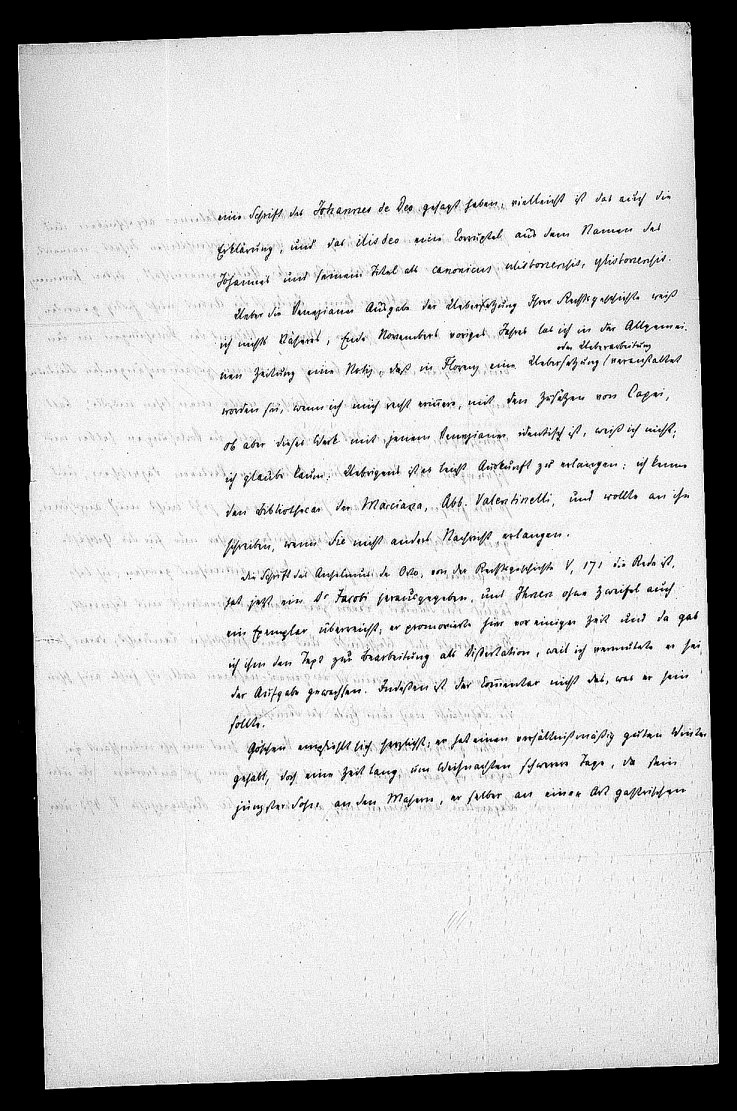 eine Schrift des Johannes de Deo gesagt haben, vielleicht ist das auch die
Erklärung, und das ilisdeo eine Corruptel aus dem Namen des
Johannes und seinem Titel als canonicus ulixbonensis, ylixbonensis.
Ueber die Venezianer Ausgabe der Uebersetzung Ihrer Rechtsgeschichte weiß
ich nichts Näheres, Ende Novembers vorigen Jahres las ich in der Allgemei-
oder Ueberarbeitung
nen Zeitung eine Notiz, daß in Florenz eine Uebersetzung veranstaltet
worden sei, wenn ich mich recht erinnere, mit den Zusätzen von Capei,
ob aber dieses Werk mit jenem Venezianer identisch ist, weiß ich nicht,
ich glaube kaum. Uebrigens ist es leicht Auskunft zu erlangen: ich kenne
den Bibliothecar der Marciana, Abb. Valentinelli, und wollte an ihn
schreiben, wenn Sie nicht anders Nachricht erlangen.
Die Schrift des Anselminus de Orto, von der Rechtsgeschichte V, 171 die Rede ist,
hat jetzt ein Dr Jacobi herausgegeben, und Ihnen ohne Zweifel auch
ein Exemplar überreicht; er promovierte hier vor einiger Zeit und da gab
ich ihm den Text zur Bearbeitung als Dissertation, weil ich vermutete er sei
der Aufgabe gewachsen. Indeßen ist der Commentar nicht das, was er sein
sollte.
Göschen empfiehlt sich herzlich; er hat einen verhältnißmäßig guten Winter
gehabt, doch eine Zeit lang, um Weihnachten schwere Tage, da sein
jüngster Sohn an den Masern, er selber an einer Art gastrischen